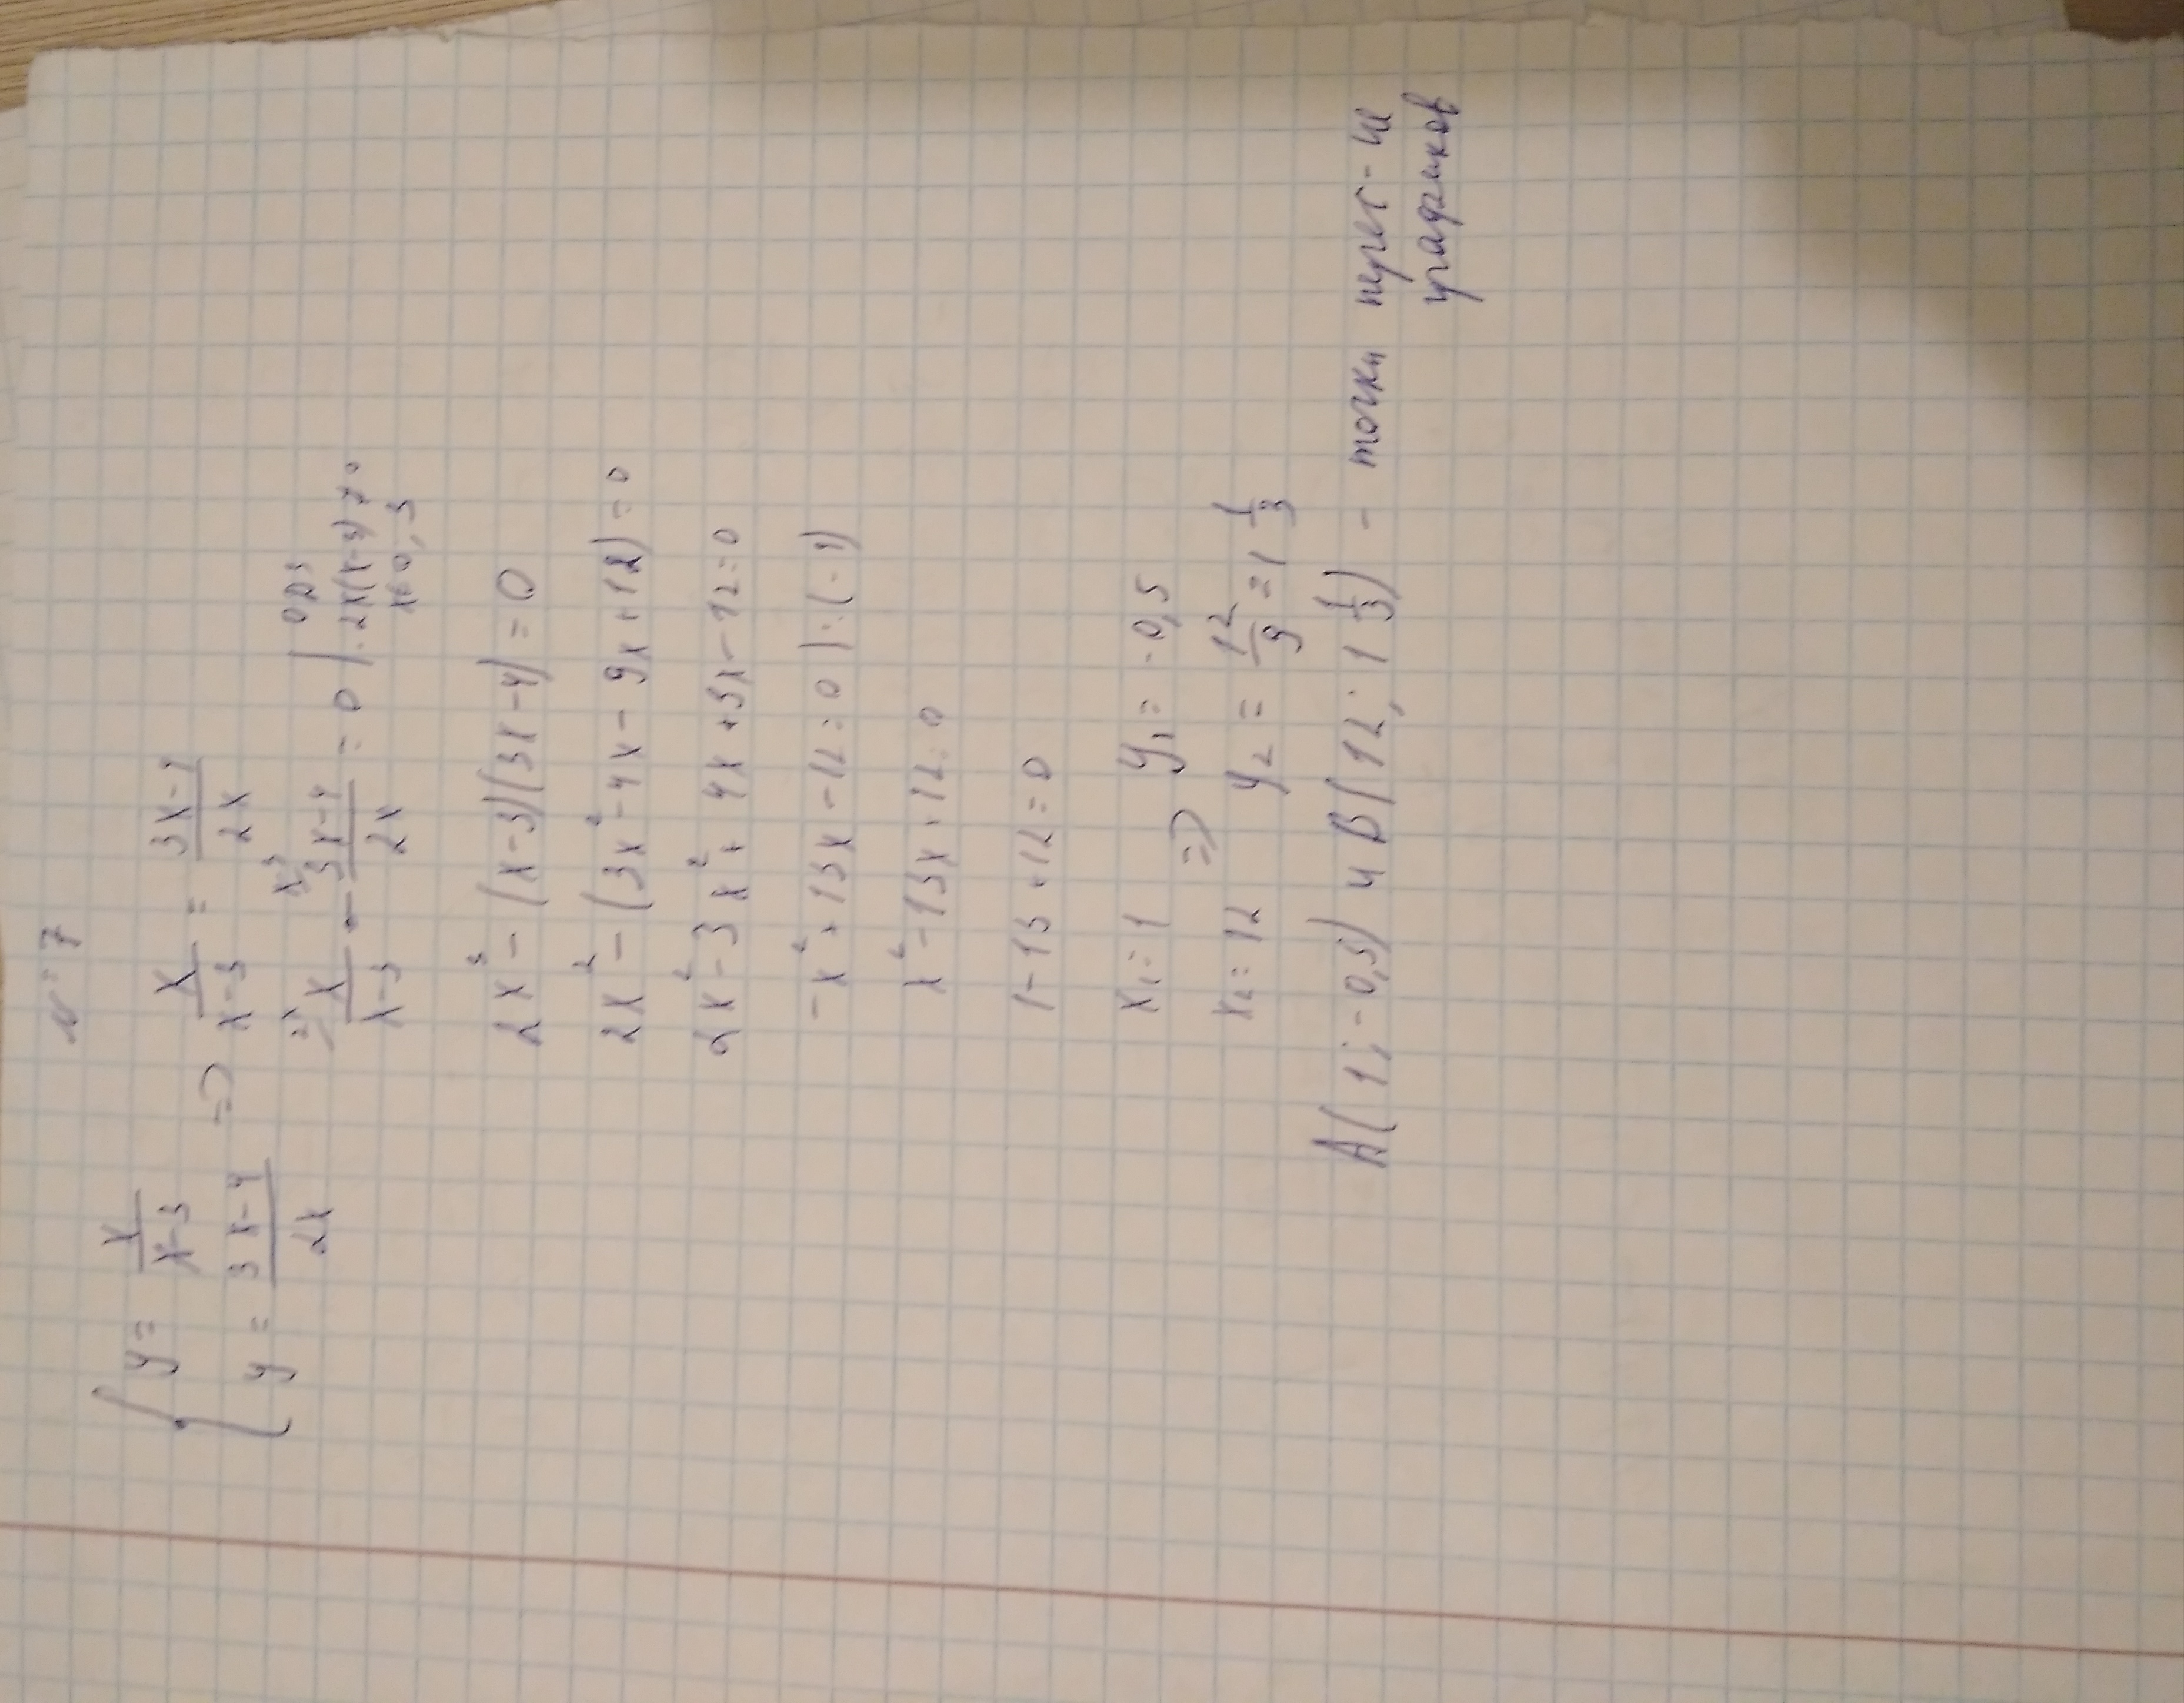 № 7
{ y = x/(x-3)
y = (3x-4)/2x => x/(x-3) = (3x-4)/2x
2x\ x/(x-3) - x-3\ (3x-4)/2x = 0 | · 2x(x-3) ≠ 0
ОДЗ
x ≠ 0, 3
2x² - (x-3)(3x-4) = 0
2x² - (3x² - 4x - 9x + 12) = 0
2x² - 3x² + 4x + 9x - 12 = 0
-x² + 13x - 12 = 0 | : (-1)
x² - 13x + 12 = 0
1 - 13 + 12 = 0
x₁ = 1 => y₁ = -0,5
x₂ = 12 y₂ = 12/9 = 1 1/3
A(1; -0,5) и B(12; 1 1/3) - точки перес-ия
графиков